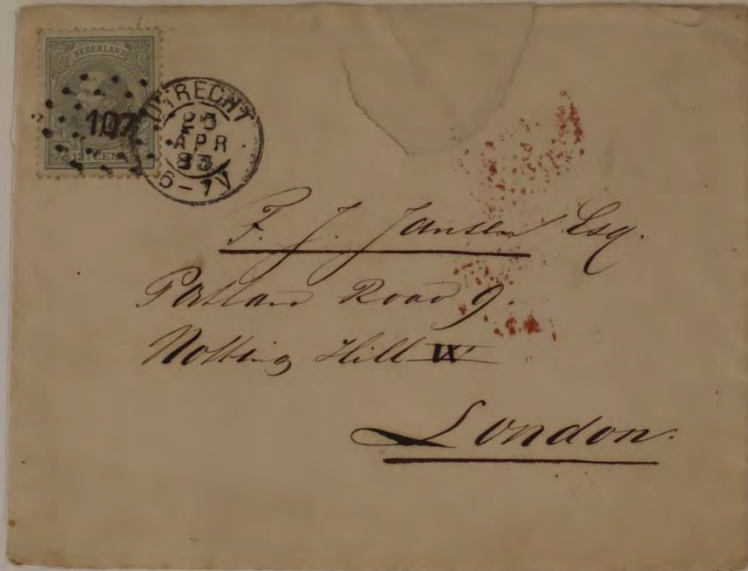 NEDERLAND
107
CENT
UTRECHT
25
APR
83
6-7V
F. J. Jansen Esq.
Portland Road 9.
Notting Hill W
London.